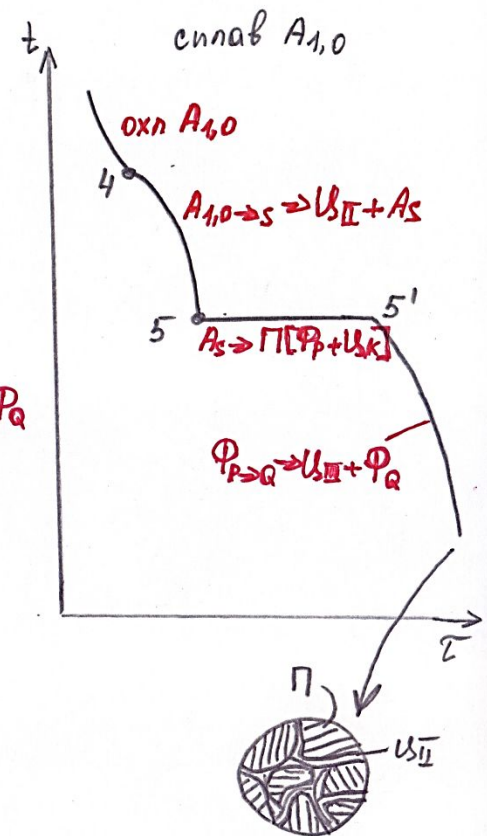 t
сплав А1,0
охл А1,0
4
А1,0→S → ЦII + АS
5
5'
АS → П[ФP + ЦK]
PQ
ФP→Q → ЦIII + ФQ
τ
П
ЦII